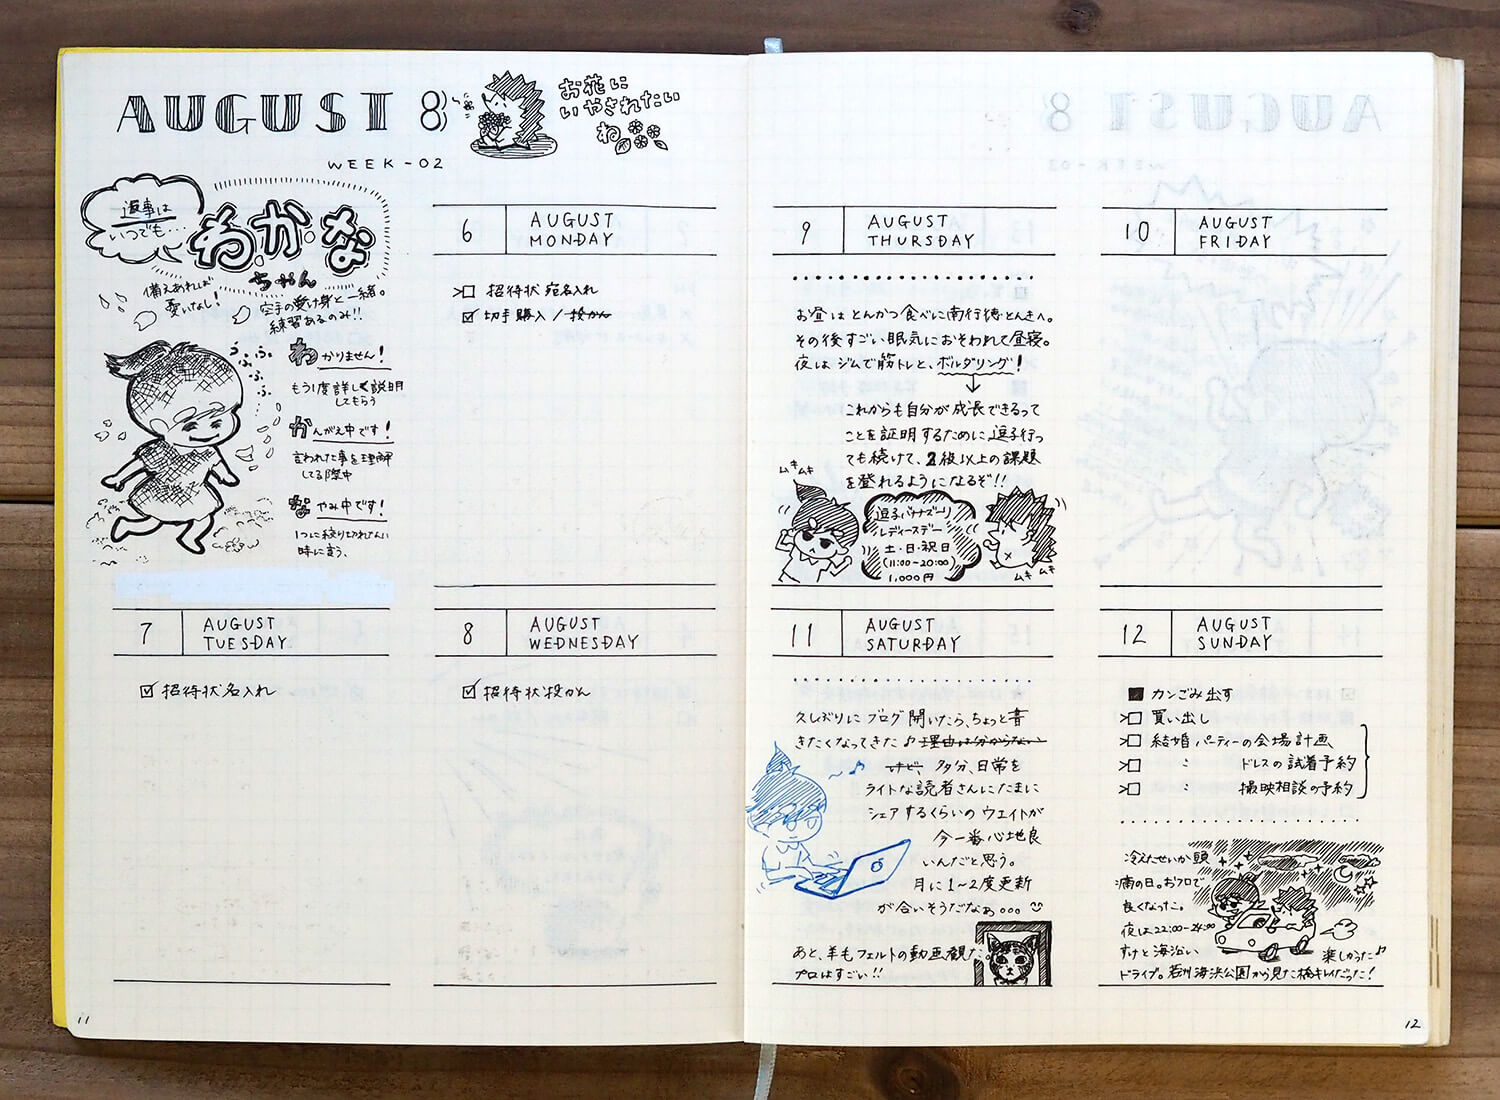 AUGUST 8
お花に
いやされたい
ね
WEEK-02
返事は
いつでも…
わ.か.な
ちゃん
備えあれば
憂いなし!
空手の受け身と一緒。
練習あるのみ!!
ふふふふ…
わかりません!
もう1度詳しく説明
してもらう
かんがえ中です!
言われた事を理解
してる際中
なやみ中です!
1つに絞り切れない
時に言う、
6 AUGUST MONDAY
>□ 招待状宛名入れ
☑ 切手購入/投かん
7 AUGUST TUESDAY
☑ 招待状名入れ
8 AUGUST WEDNESDAY
☑ 招待状投かん
11
9 AUGUST THURSDAY
お昼はとんかつ食べに南行徳とんきへ。
その後すごい眠気におそわれて昼寝。
夜はジムで筋トレと、ボルダリング!
↓
これからも自分が成長できるって
ことを証明するために逗子行っ
ても続けて、2級以上の課題
を登れるようになるぞ!!
ムキムキ
逗子バナズーリ
レディースデー
土・日・祝日
(11:00-20:00)
1,000円
ムキ ムキ
10 AUGUST FRIDAY
11 AUGUST SATURDAY
久しぶりにブログ開いたら、ちょっと書
きたくなってきた♪理由は分からない
けど、多分、日常を
ライトな読者さんにたまに
シェアするくらいのウエイトが
今一番心地良
いんだと思う。
月に1~2度更新
が合いそうだなぁ。。。
あと、羊毛フェルトの動画観た。
プロはすごい!!
12 AUGUST SUNDAY
■ カンごみ出す
>□ 買い出し
>□ 結婚パーティーの会場計画
>□ 〃 ドレスの試着予約
>□ 〃 撮映相談の予約
冷えたせいか頭
痛の日。おフロで
良くなった。
夜は22:00-24:00
すけと海沿い
ドライブ。若洲海浜公園から見た橋キレイだった!
楽しかった♪
12